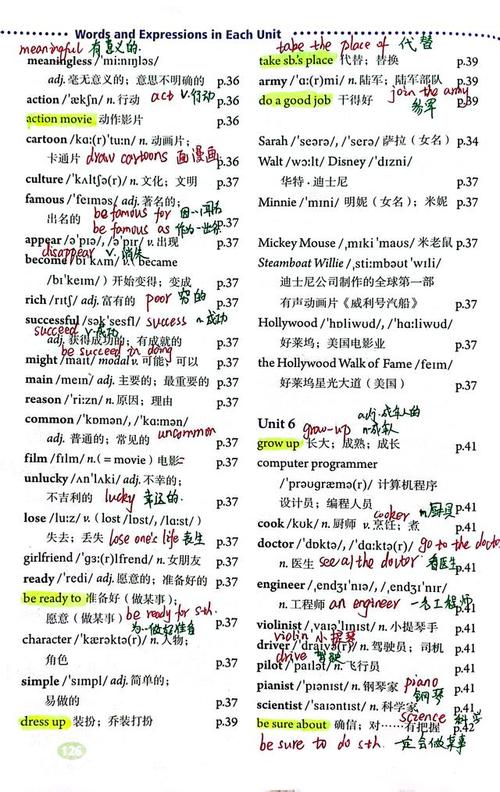 Words and Expressions in Each Unit
meaningful 有意义的.
meaningless /'mi:nɪŋləs/
adj. 毫无意义的；意思不明确的 p.36
action /'ækʃn/ n. 行动 act v.行动 p.36
action movie 动作影片 p.36
cartoon /kɑ:(r)'tu:n/ n. 动画片；
卡通片 draw cartoons 画漫画 p.36
culture /'kʌltʃə(r)/ n. 文化；文明 p.37
famous /'feɪməs/ adj. 著名的；
出名的 be famous for 因…闻名 p.37
be famous as 作为…出名
appear /ə'pɪə/, /ə'pɪr/ v. 出现 p.37
disappear v. 消失
become /bɪ'kʌm/ v. (became
/bɪ'keɪm/) 开始变得；变成 p.37
rich /rɪtʃ/ adj. 富有的 poor 穷的 p.37
successful /sək'sesfl/ success n.成功
succeed v.成功
adj. 获得成功的；有成就的 p.37
be succeed in doing
might /maɪt/ modal v. 可能；可以 p.37
main /meɪn/ adj. 主要的；最重要的 p.37
reason /'ri:zn/ n. 原因；理由 p.37
common /'kɒmən/, /'kɑ:mən/
adj. 普通的；常见的 uncommon p.37
film /fɪlm/ n. (= movie) 电影 p.37
unlucky /ʌn'lʌki/ adj. 不幸的；
不吉利的 lucky 幸运的. p.37
lose /lu:z/ v. (lost /lɒst/, /lɑ:st/)
失去；丢失 lose one's life 丧生 p.37
girlfriend /'gɜ:(r)lfrend/ n. 女朋友 p.37
ready /'redi/ adj. 愿意的；准备好的 p.37
be ready to 准备好（做某事）；
愿意（做某事） be ready for sth. p.37
为…做好准备
character /'kærəktə(r)/ n. 人物；
角色 p.37
simple /'sɪmpl/ adj. 简单的；
易做的 p.37
dress up 装扮；乔装打扮 p.39
126
take the place of 代替
take sb.'s place 代替；替换 p.39
army /'ɑ:(r)mi/ n. 陆军；陆军部队 p.39
join the army
do a good job 干得好 p.39
Sarah /'seərə/, /'serə/ 萨拉（女名） p.34
Walt /wɔ:lt/ Disney /'dɪzni/
华特·迪士尼 p.37
Minnie /'mɪni/ 明妮（女名）；米妮
p.37
Mickey Mouse /ˌmɪki 'maʊs/ 米老鼠 p.37
Steamboat Willie /ˌsti:mbəʊt 'wɪli/
迪士尼公司制作的全球第一部
有声动画片《威利号汽船》 p.37
Hollywood /'hɒliwʊd/, /'hɑ:liwʊd/
好莱坞；美国电影业 p.37
the Hollywood Walk of Fame /feɪm/
好莱坞星光大道（美国） p.37
Unit 6 grow-up adj.成人的
n.成人
grow up 长大；成熟；成长 p.41
computer programmer
/'prəʊgræmə(r)/ 计算机程序
设计员；编程人员 p.41
cooker n.厨具
cook /kʊk/ n. 厨师 v.烹饪；煮 p.41
doctor /'dɒktə/, /'dɑ:ktə(r)/ go to the doctor
n. 医生 see a) the doctor 看医生 p.41
engineer /ˌendʒɪ'nɪə/, /ˌendʒɪ'nɪr/
n. 工程师 an engineer 一名工程师 p.41
violinist /ˌvaɪə'lɪnɪst/ n. 小提琴手 p.41
violin 小提琴
driver /'draɪvə(r)/ n. 驾驶员；司机 p.41
drive 驾驶
pilot /'paɪlət/ n. 飞行员 p.41
pianist /'pɪənɪst/ n. 钢琴家 piano 钢琴 p.41
scientist /'saɪəntɪst/ n. 科学家 p.41
science 科学
be sure about 确信；对……有把握 p.42
be sure to do sth. 一定会做某事